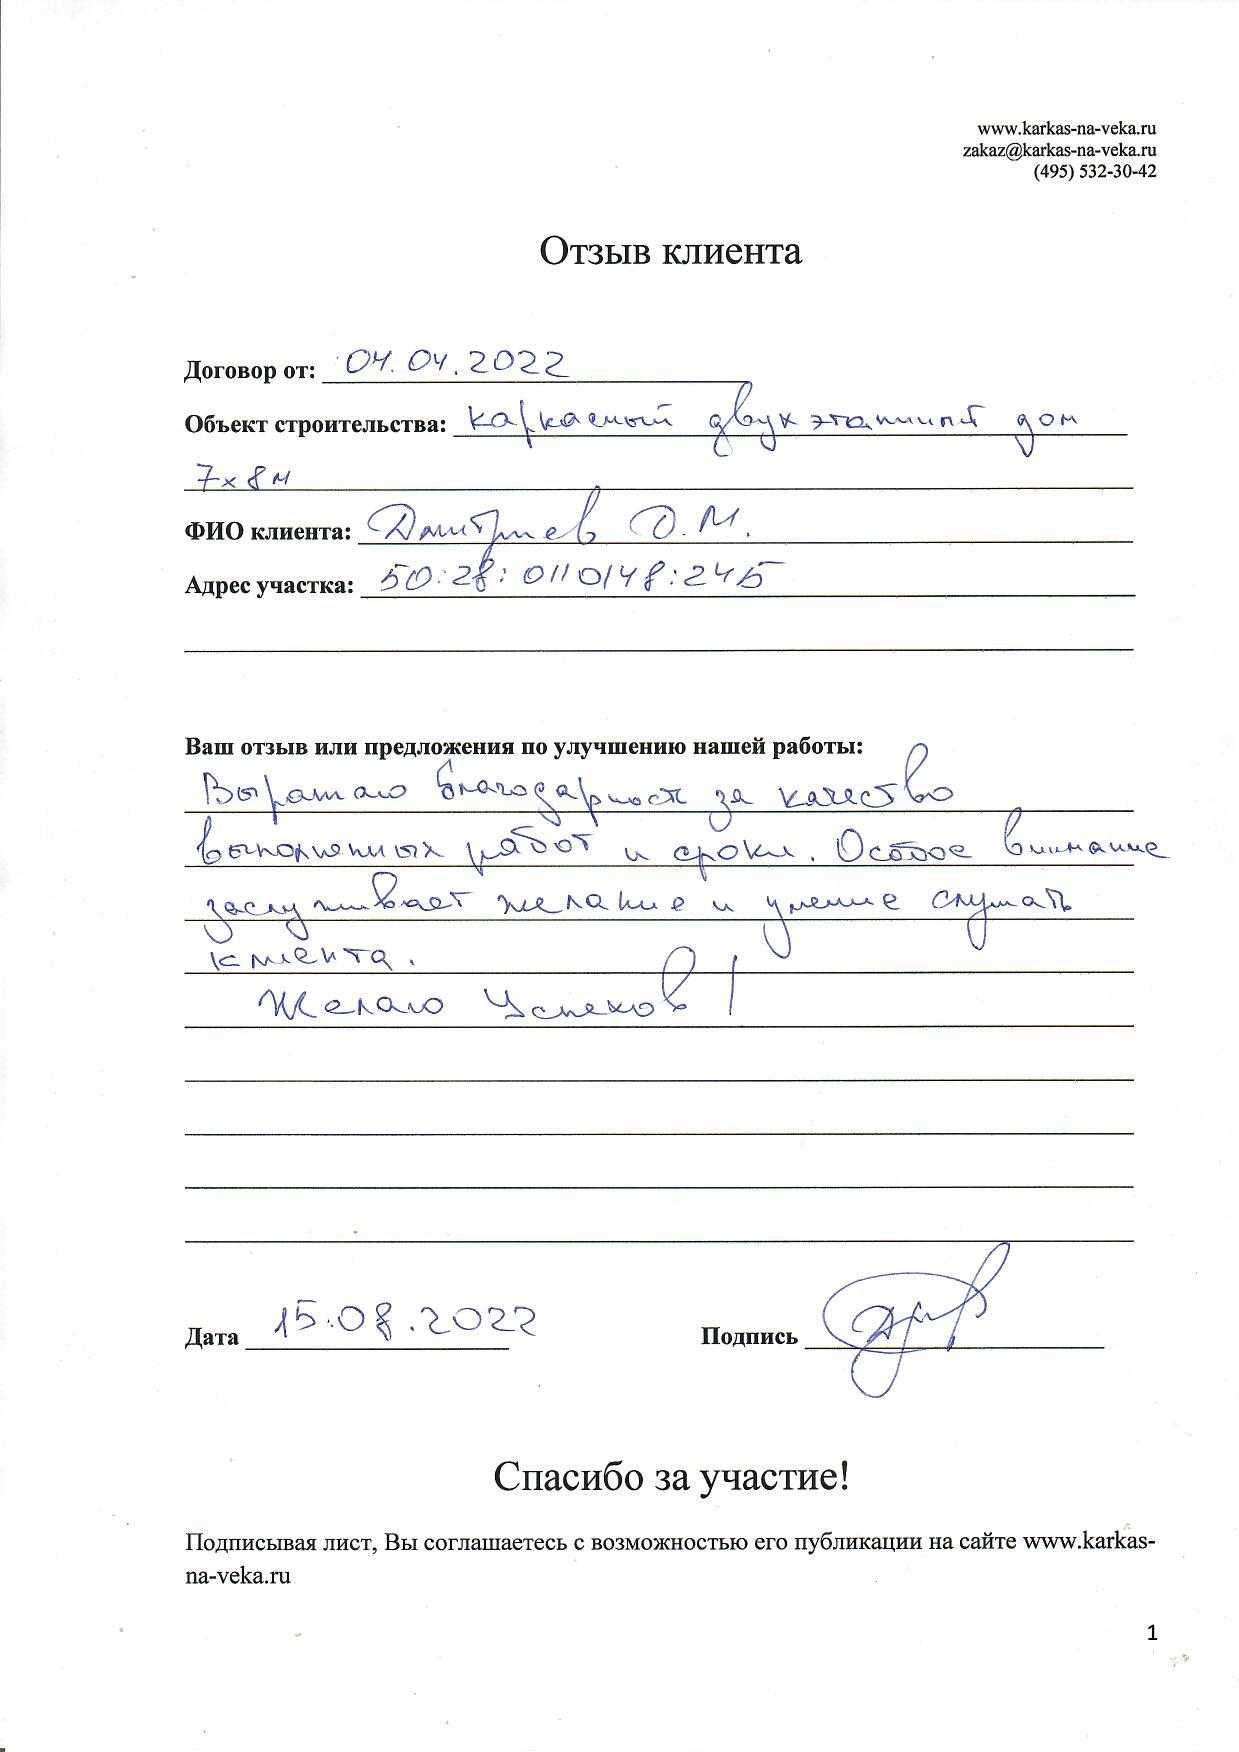 www.karkas-na-veka.ru
zakaz@karkas-na-veka.ru
(495) 532-30-42
Отзыв клиента
Договор от: 04.04.2022
Объект строительства: каркасный двухэтажный дом
7х8м
ФИО клиента: Дмитриев О.М.
Адрес участка: 50:28:0110148:245
Ваш отзыв или предложения по улучшению нашей работы:
Выражаю благодарность за качество
выполненных работ и сроки. Особое внимание
заслуживает желание и умение слушать
клиента.
Желаю Успехов!
Дата 15.08.2022 Подпись
Спасибо за участие!
Подписывая лист, Вы соглашаетесь с возможностью его публикации на сайте www.karkas-
na-veka.ru
1